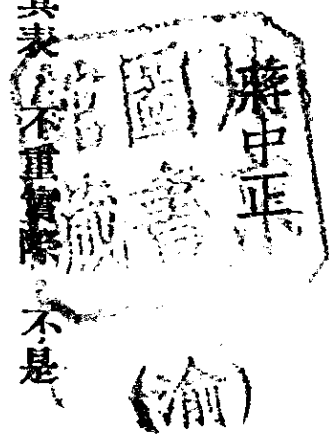 蔣中正
圖書
藏
(渝)
其表,不重實際。不是